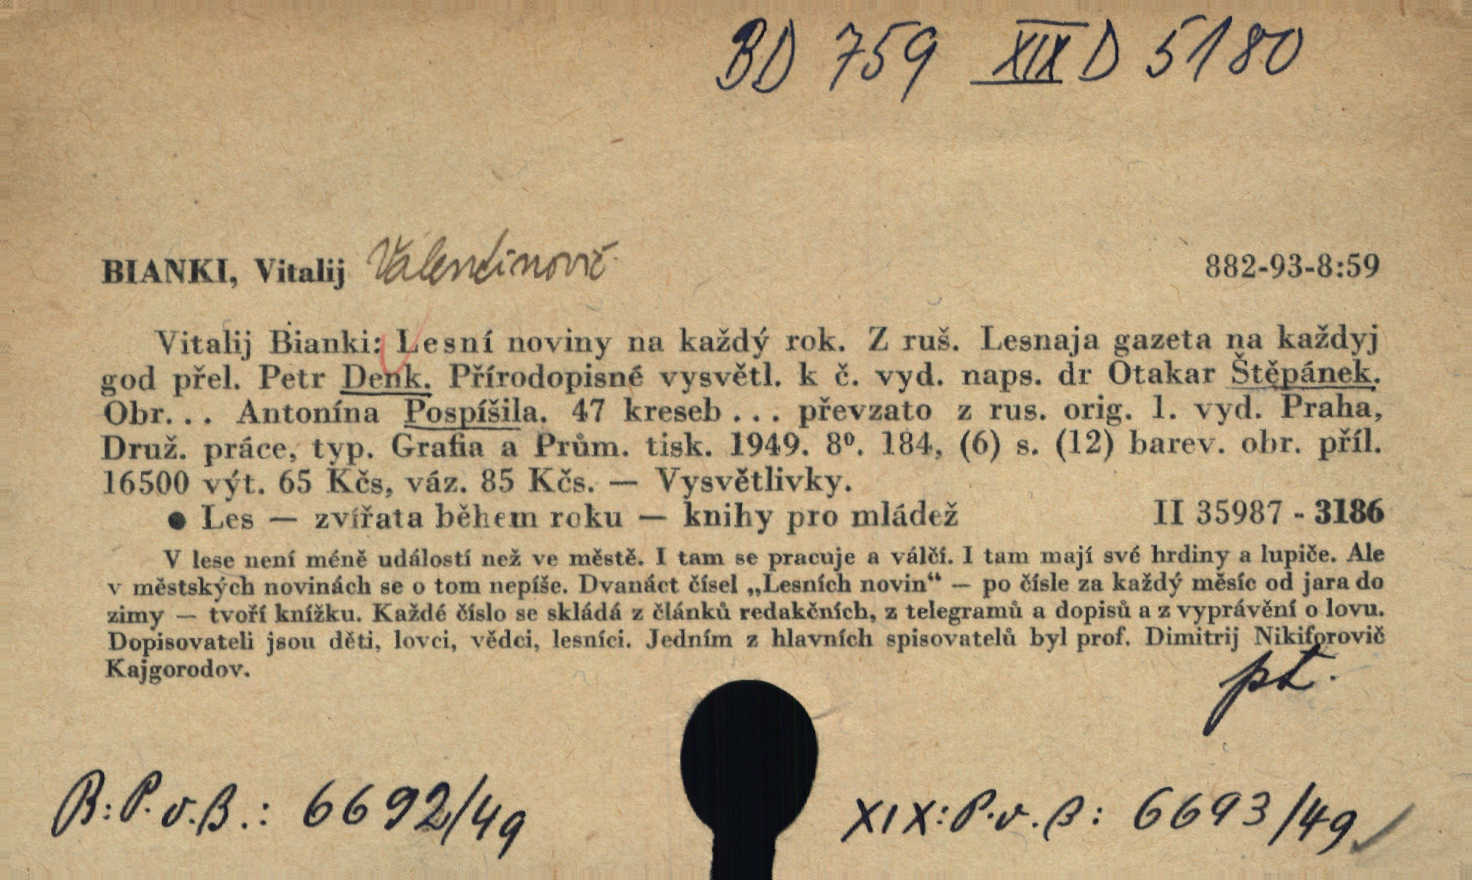 BD 759 XIX D 5180
BIANKI, Vitalij Valentinovič 882-93-8:59
Vitalij Bianki: Lesní noviny na každý rok. Z ruš. Lesnaja gazeta na každyj
god přel. Petr Denk. Přírodopisné vysvětl. k č. vyd. naps. dr Otakar Štěpánek.
Obr... Antonína Pospíšila. 47 kreseb ... převzato z rus. orig. 1. vyd. Praha,
Druž. práce, typ. Grafia a Prům. tisk. 1949. 8⁰. 184, (6) s. (12) barev. obr. příl.
16500 výt. 65 Kčs, váz. 85 Kčs. — Vysvětlivky.
● Les — zvířata během roku — knihy pro mládež II 35987 - 3186
V lese není méně událostí než ve městě. I tam se pracuje a válčí. I tam mají své hrdiny a lupiče. Ale
v městských novinách se o tom nepíše. Dvanáct čísel „Lesních novin“ — po čísle za každý měsíc od jara do
zimy — tvoří knížku. Každé číslo se skládá z článků redakčních, z telegramů a dopisů a z vyprávění o lovu.
Dopisovateli jsou děti, lovci, vědci, lesníci. Jedním z hlavních spisovatelů byl prof. Dimitrij Nikiforovič
Kajgorodov.
pt.
B: P. v. B.: 6692/49 XIX: P. v. B: 6693/49